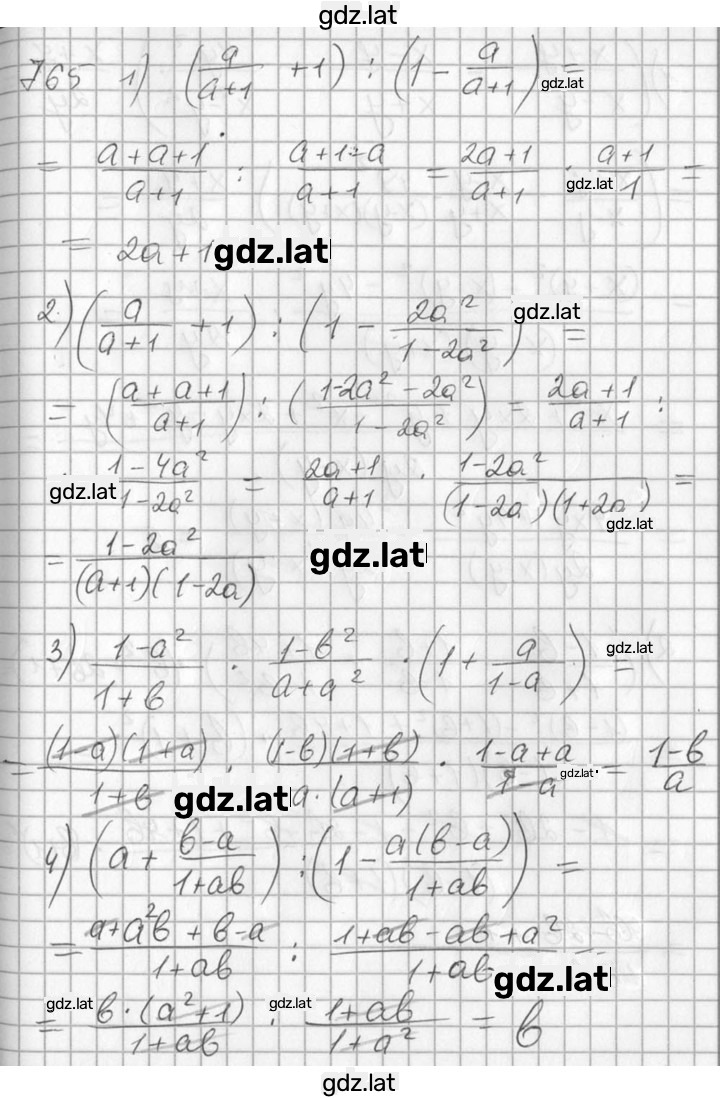 gdz.lat
765 1) (a/(a+1) + 1) : (1 - a/(a+1)) = gdz.lat
= (a+a+1)/(a+1) : (a+1-a)/(a+1) = (2a+1)/(a+1) · (a+1)/1 = gdz.lat
= 2a+1 gdz.lat
2) (a/(a+1) + 1) : (1 - 2a²/(1-2a²)) = gdz.lat
= ((a+a+1)/(a+1)) : ((1-2a²-2a²)/(1-2a²)) = (2a+1)/(a+1) :
gdz.lat (1-4a²)/(1-2a²) = (2a+1)/(a+1) · (1-2a²)/((1-2a)(1+2a)) = gdz.lat
= (1-2a²)/((a+1)(1-2a)) gdz.lat
3) (1-a²)/(1+b) · (1-b²)/(a+a²) · (1 + a/(1-a)) = gdz.lat
= ((1-a)(1+a))/(1+b) · ((1-b)(1+b))/(a·(a+1)) · (1-a+a)/(1-a) = (1-b)/a gdz.lat gdz.lat
4) (a + (b-a)/(1+ab)) : (1 - a(b-a)/(1+ab)) =
= (a+a²b+b-a)/(1+ab) : (1+ab-ab+a²)/(1+ab) = gdz.lat
gdz.lat = (b·(a²+1))/(1+ab) · (1+ab)/(1+a²) = b gdz.lat
gdz.lat